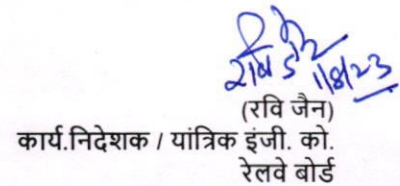 रवि जैन
1/8/23
(रवि जैन)
कार्य.निदेशक / यांत्रिक इंजी. को.
रेलवे बोर्ड